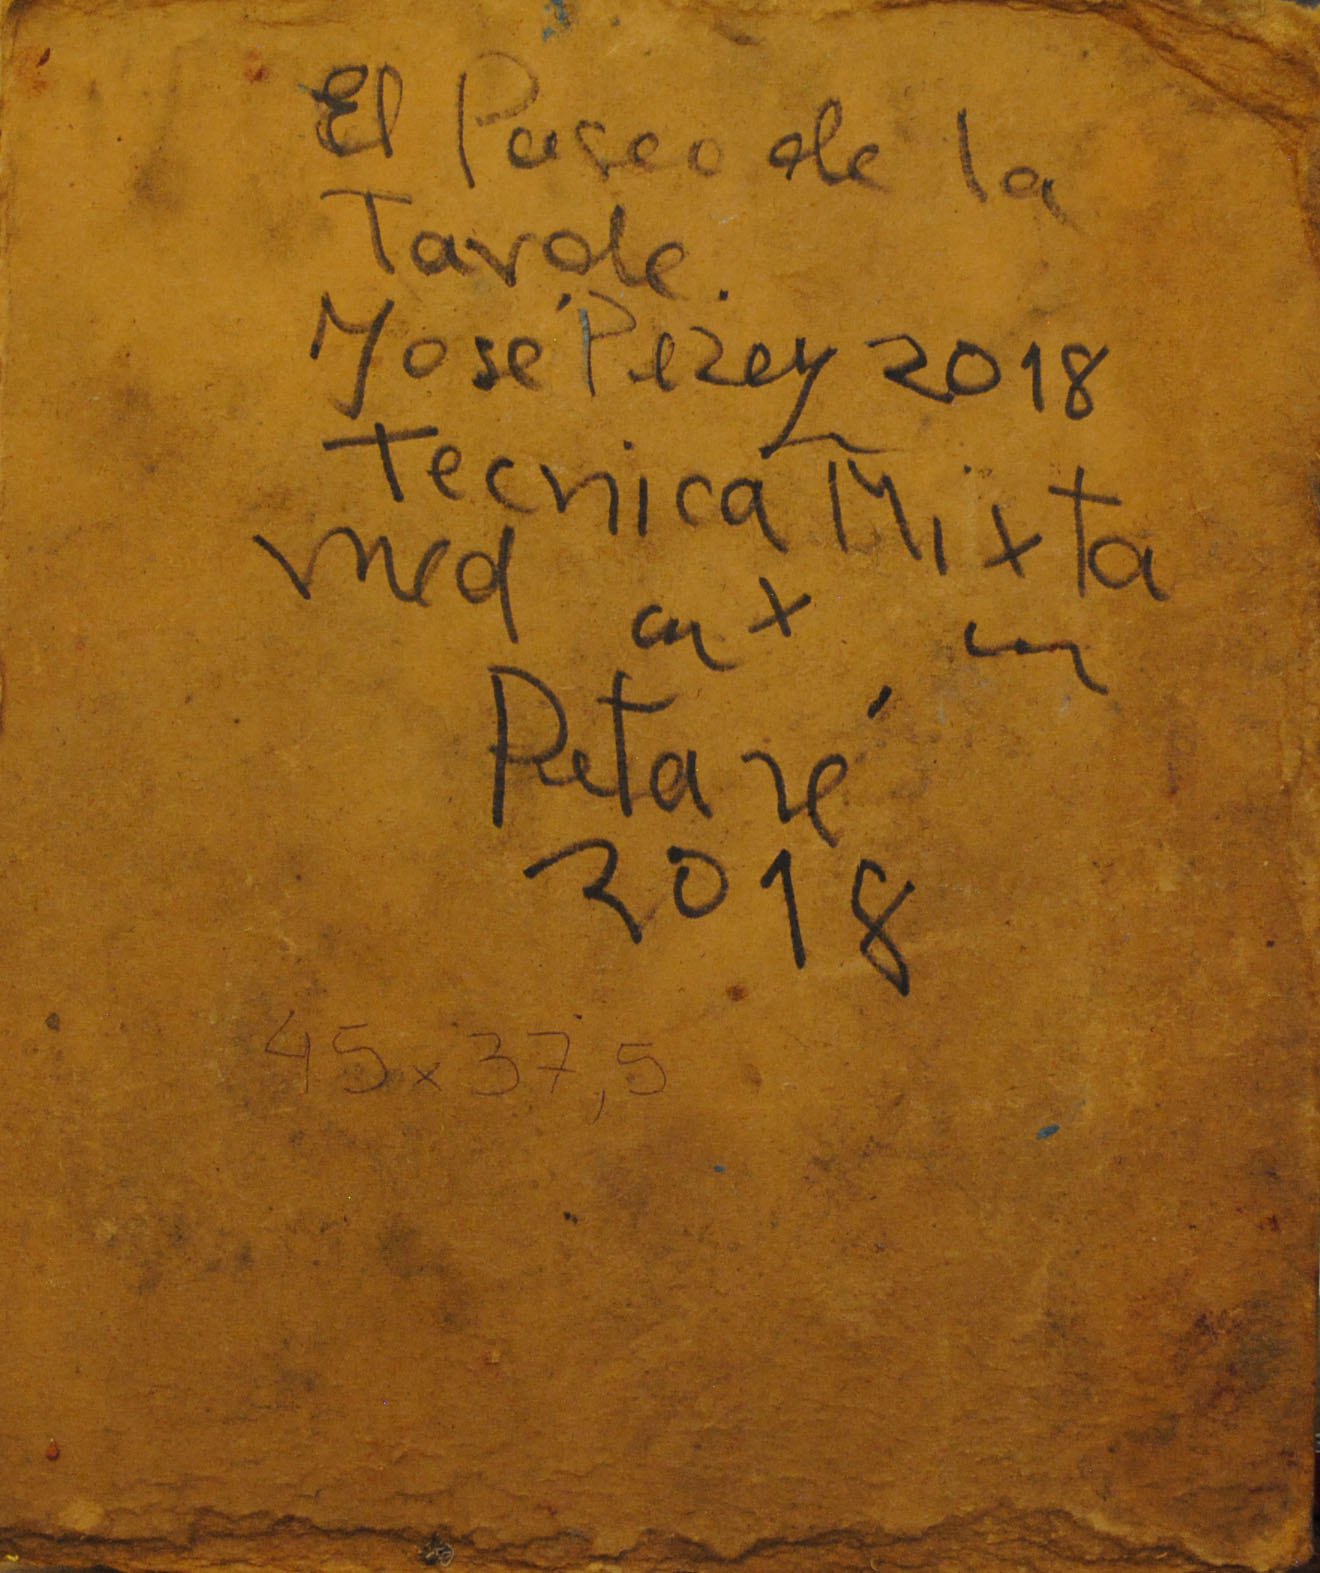 El Paseo de la
Tarde.
José Perez 2018
Tecnica Mixta
med cm x cm
Petaré
2018
45x37,5